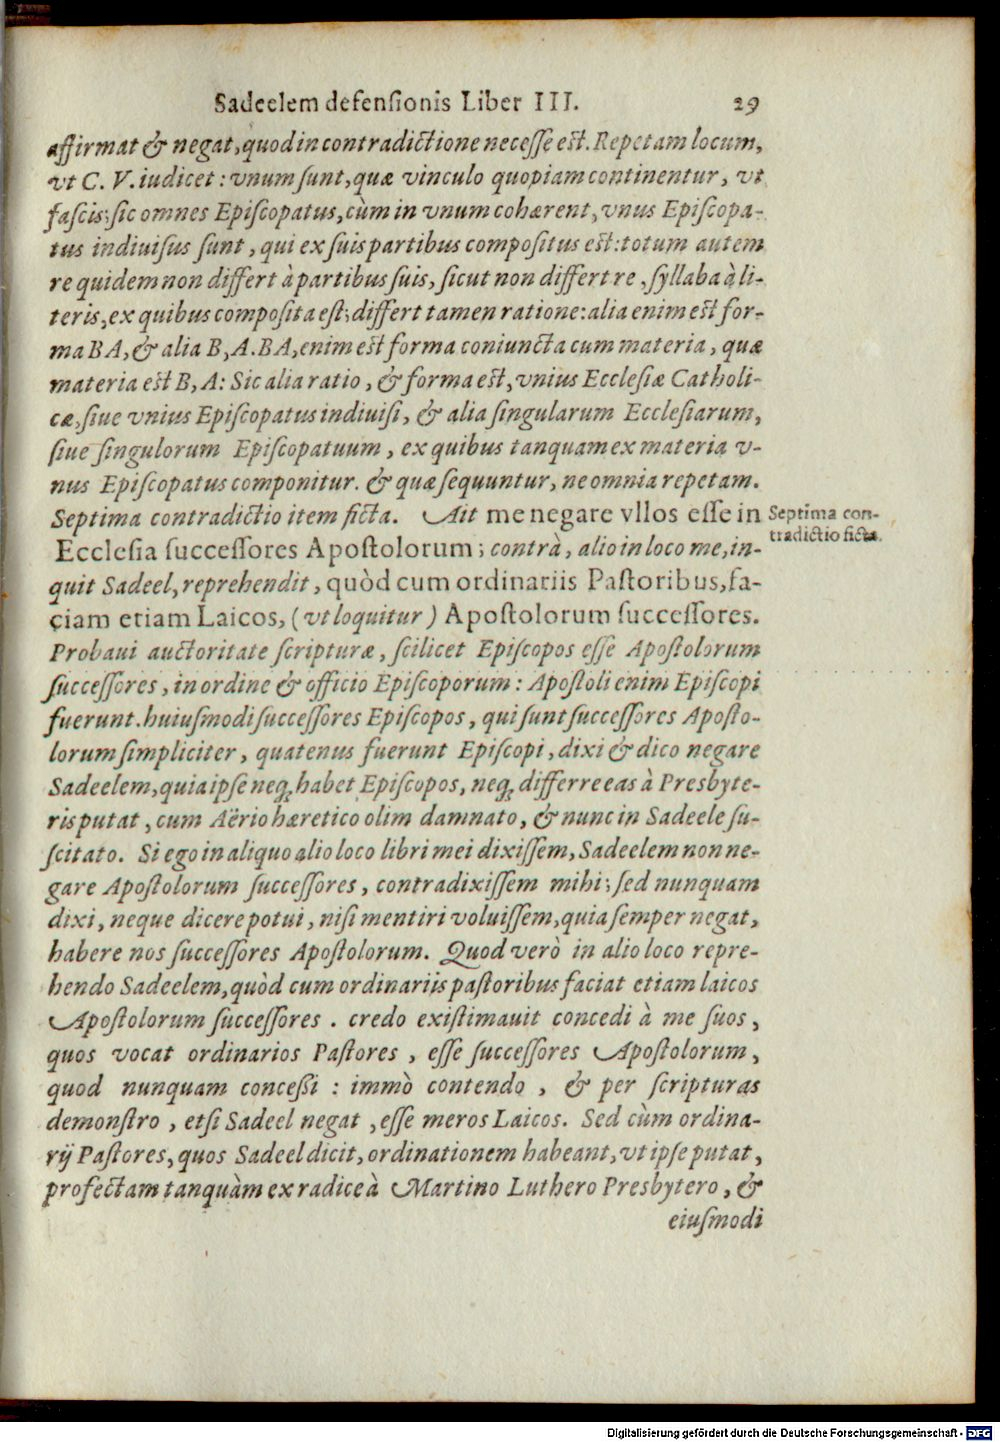 Sadeelem defensionis Liber III. 29
affirmat & negat, quod in contradictione necesse est. Repetam locum,
vt C. V. iudicet: vnum sunt, quæ vinculo quopiam continentur, vt
fascis; sic omnes Episcopatus, cùm in vnum cohærent, vnus Episcopa-
tus indiuisus sunt, qui ex suis partibus compositus est: totum autem
re quidem non differt à partibus suis, sicut non differt re, syllaba à li-
teris, ex quibus composita est; differt tamen ratione: alia enim est for-
ma BA, & alia B, A. BA, enim est forma coniuncta cum materia, quæ
materia est B, A: Sic alia ratio, & forma est, vnius Ecclesiæ Catholi-
cæ, siue vnius Episcopatus indiuisi, & alia singularum Ecclesiarum,
siue singulorum Episcopatuum, ex quibus tanquam ex materia v-
nus Episcopatus componitur. & quæ sequuntur, ne omnia repetam.
Septima contradictio item ficta. Ait me negare vllos esse in
Ecclesia successores Apostolorum; contrà, alio in loco me, in-
quit Sadeel, reprehendit, quòd cum ordinariis Pastoribus, fa-
ciam etiam Laicos, (vt loquitur) Apostolorum successores.
Septima con-
tradictio ficta.
Probaui auctoritate scripturæ, scilicet Episcopos esse Apostolorum
successores, in ordine & officio Episcoporum: Apostoli enim Episcopi
fuerunt. huiusmodi successores Episcopos, qui sunt successores Aposto-
lorum simpliciter, quatenus fuerunt Episcopi, dixi & dico negare
Sadeelem, quia ipse neq; habet Episcopos, neq; differre eas à Presbyte-
ris putat, cum Aërio hæretico olim damnato, & nunc in Sadeele su-
scitato. Si ego in aliquo alio loco libri mei dixissem, Sadeelem non ne-
gare Apostolorum successores, contradixissem mihi; sed nunquam
dixi, neque dicere potui, nisi mentiri voluissem, quia semper negat,
habere nos successores Apostolorum. Quod verò in alio loco repre-
hendo Sadeelem, quòd cum ordinariis pastoribus faciat etiam laicos
Apostolorum successores. credo existimauit concedi à me suos,
quos vocat ordinarios Pastores, esse successores Apostolorum,
quod nunquam concessi: immò contendo, & per scripturas
demonstro, etsi Sadeel negat, esse meros Laicos. Sed cùm ordina-
rij Pastores, quos Sadeel dicit, ordinationem habeant, vt ipse putat,
profectam tanquàm ex radice à Martino Luthero Presbytero, &
eiusmodi
Digitalisierung gefördert durch die Deutsche Forschungsgemeinschaft - DFG